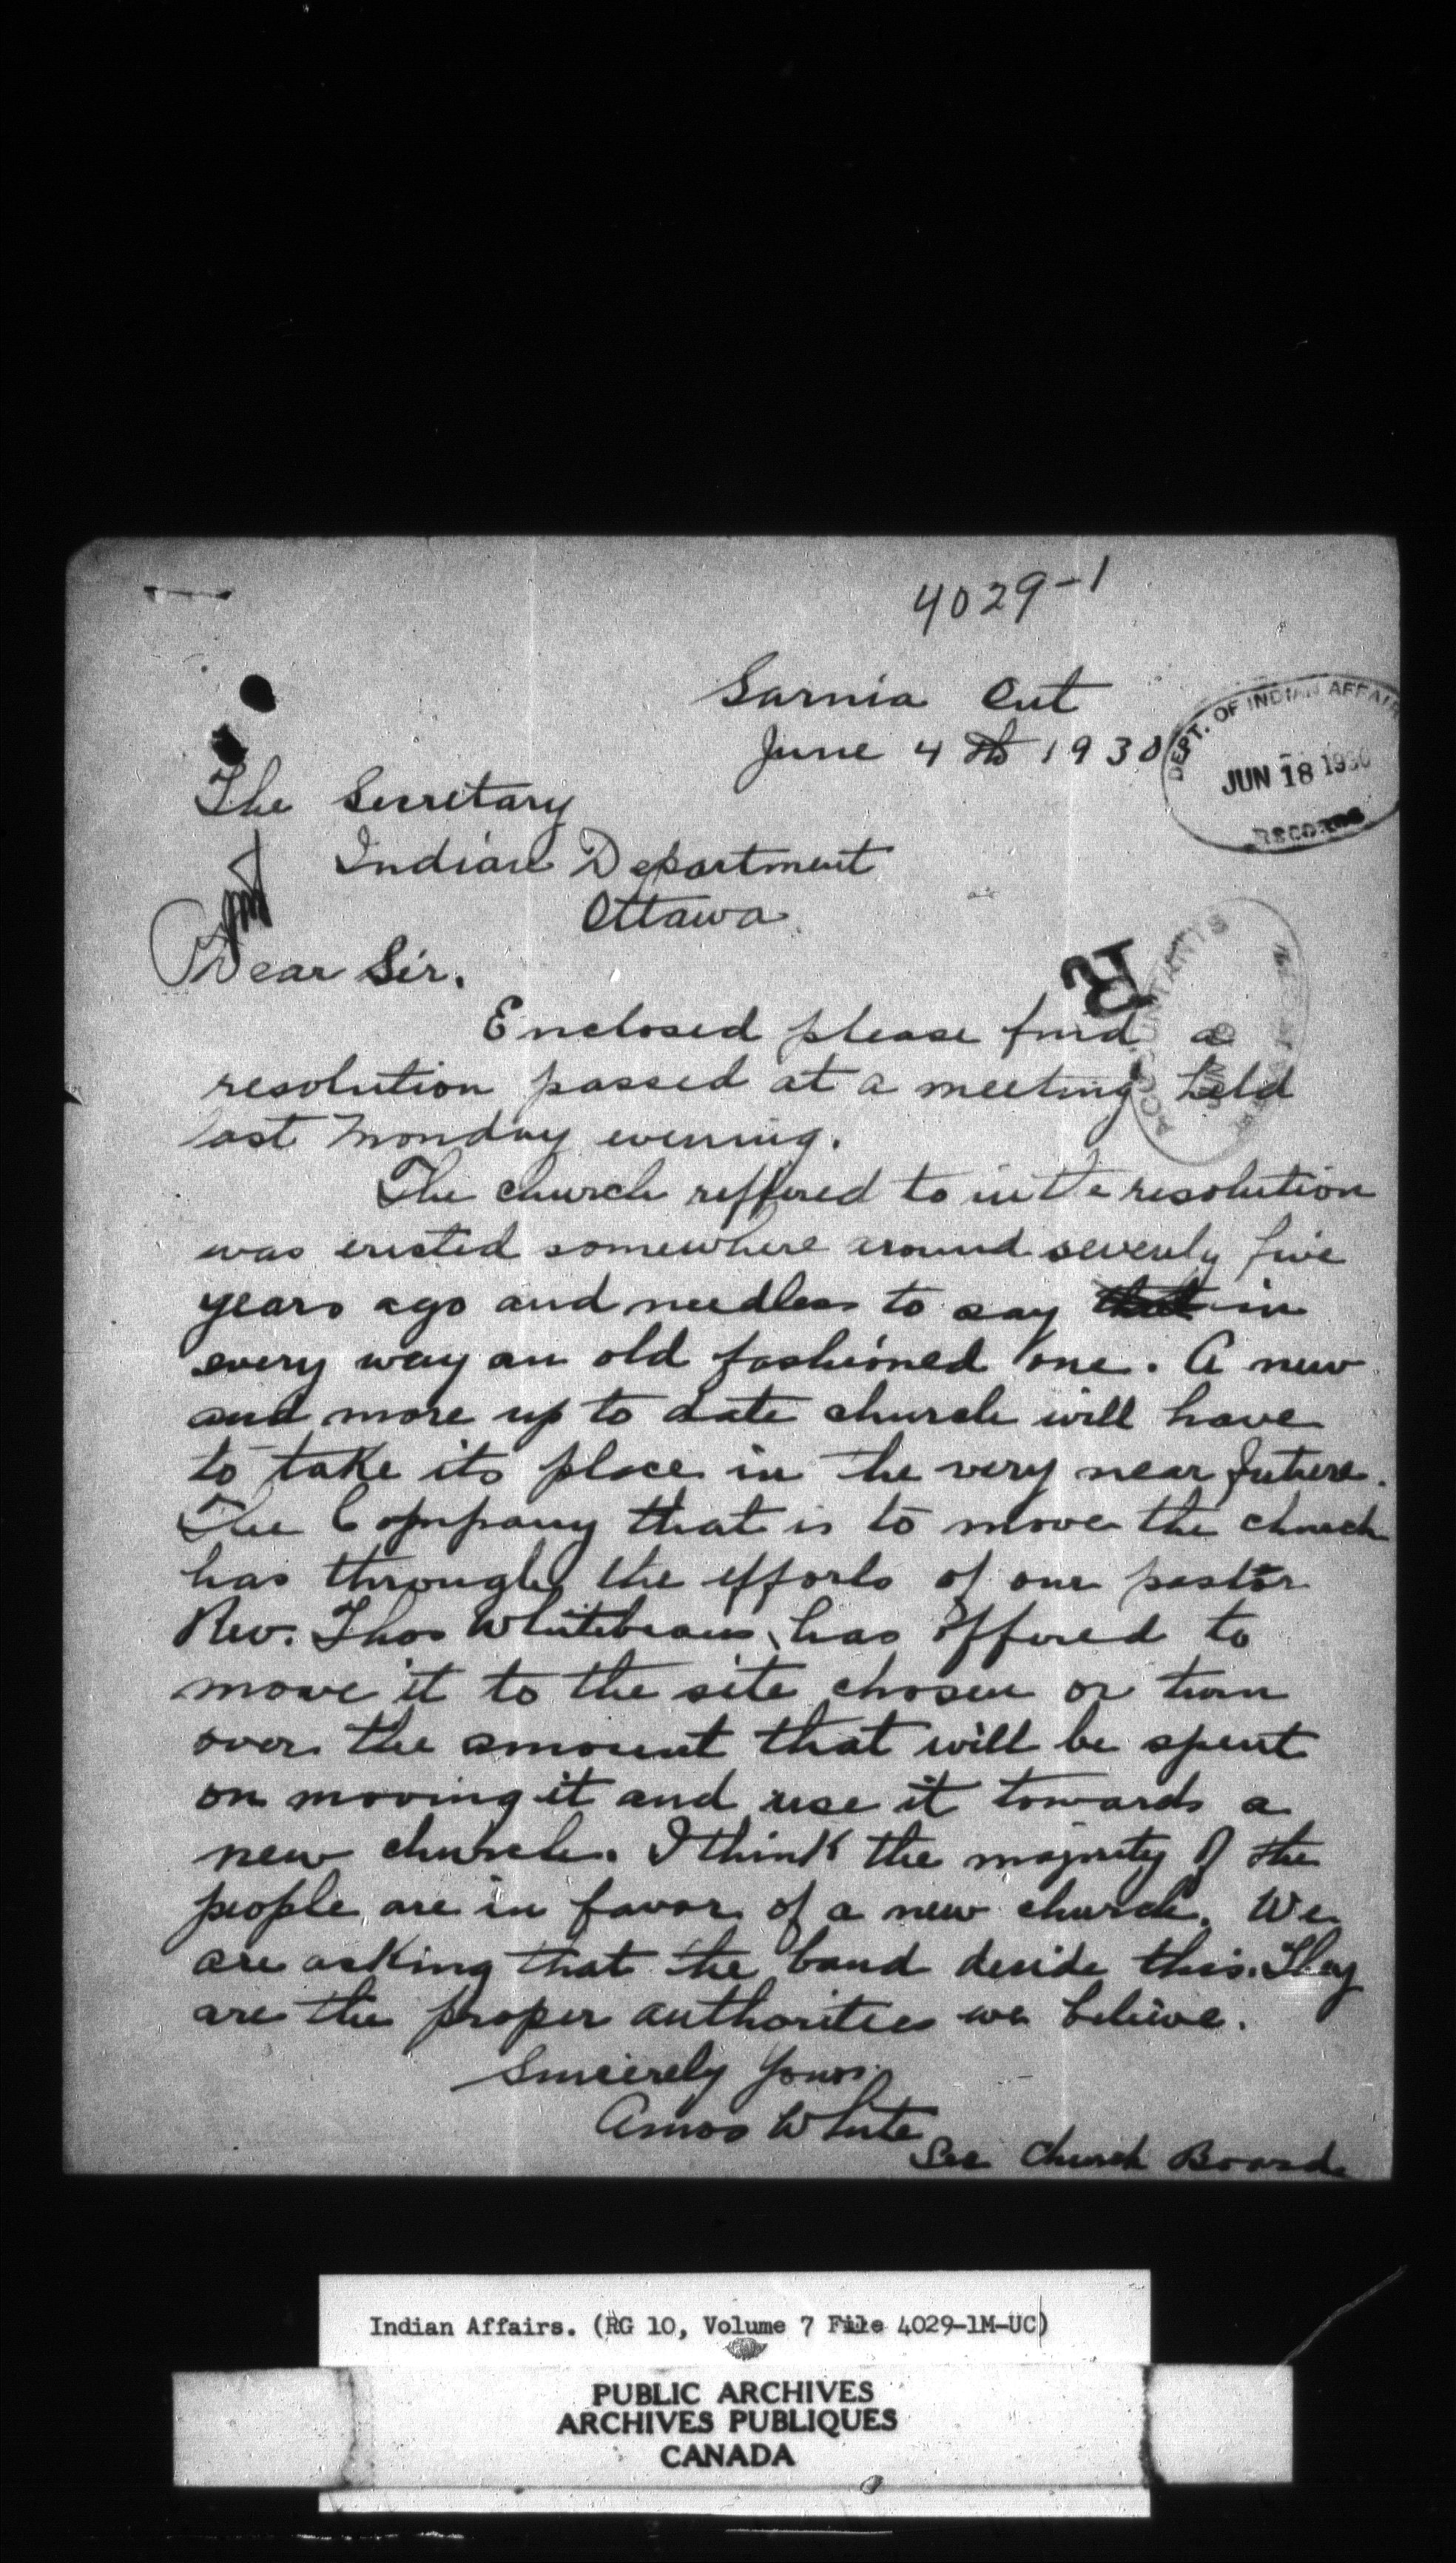 4029-1
Sarnia Ont
June 4th 1930
DEPT. OF INDIAN AFFAIRS
JUN 18 1930
RECORDS
The Secretary
Indian Department
Ottawa.
Dear Sir.
ACCOUNTANTS
JUN
Enclosed please find a
resolution passed at a meeting held
last Monday evening.
The church reffered to in the resolution
was erected somewhere around seventy five
years ago and needless to say that in
every way an old fashioned one. A new
and more up to date church will have
to take its place in the very near future.
The Company that is to move the church
has through the efforts of our pastor
Rev. Thos Whitebeans, has offered to
move it to the site chosen or turn
over the amount that will be spent
on moving it and use it towards a
new church. I think the majority of the
people are in favor of a new church. We
are asking that the band decide this. They
are the proper authorities we believe.
Sincerely Yours.
Amos White
Sec Church Board.
Indian Affairs. (RG 10, Volume 7 File 4029-1M-UC)
PUBLIC ARCHIVES
ARCHIVES PUBLIQUES
CANADA